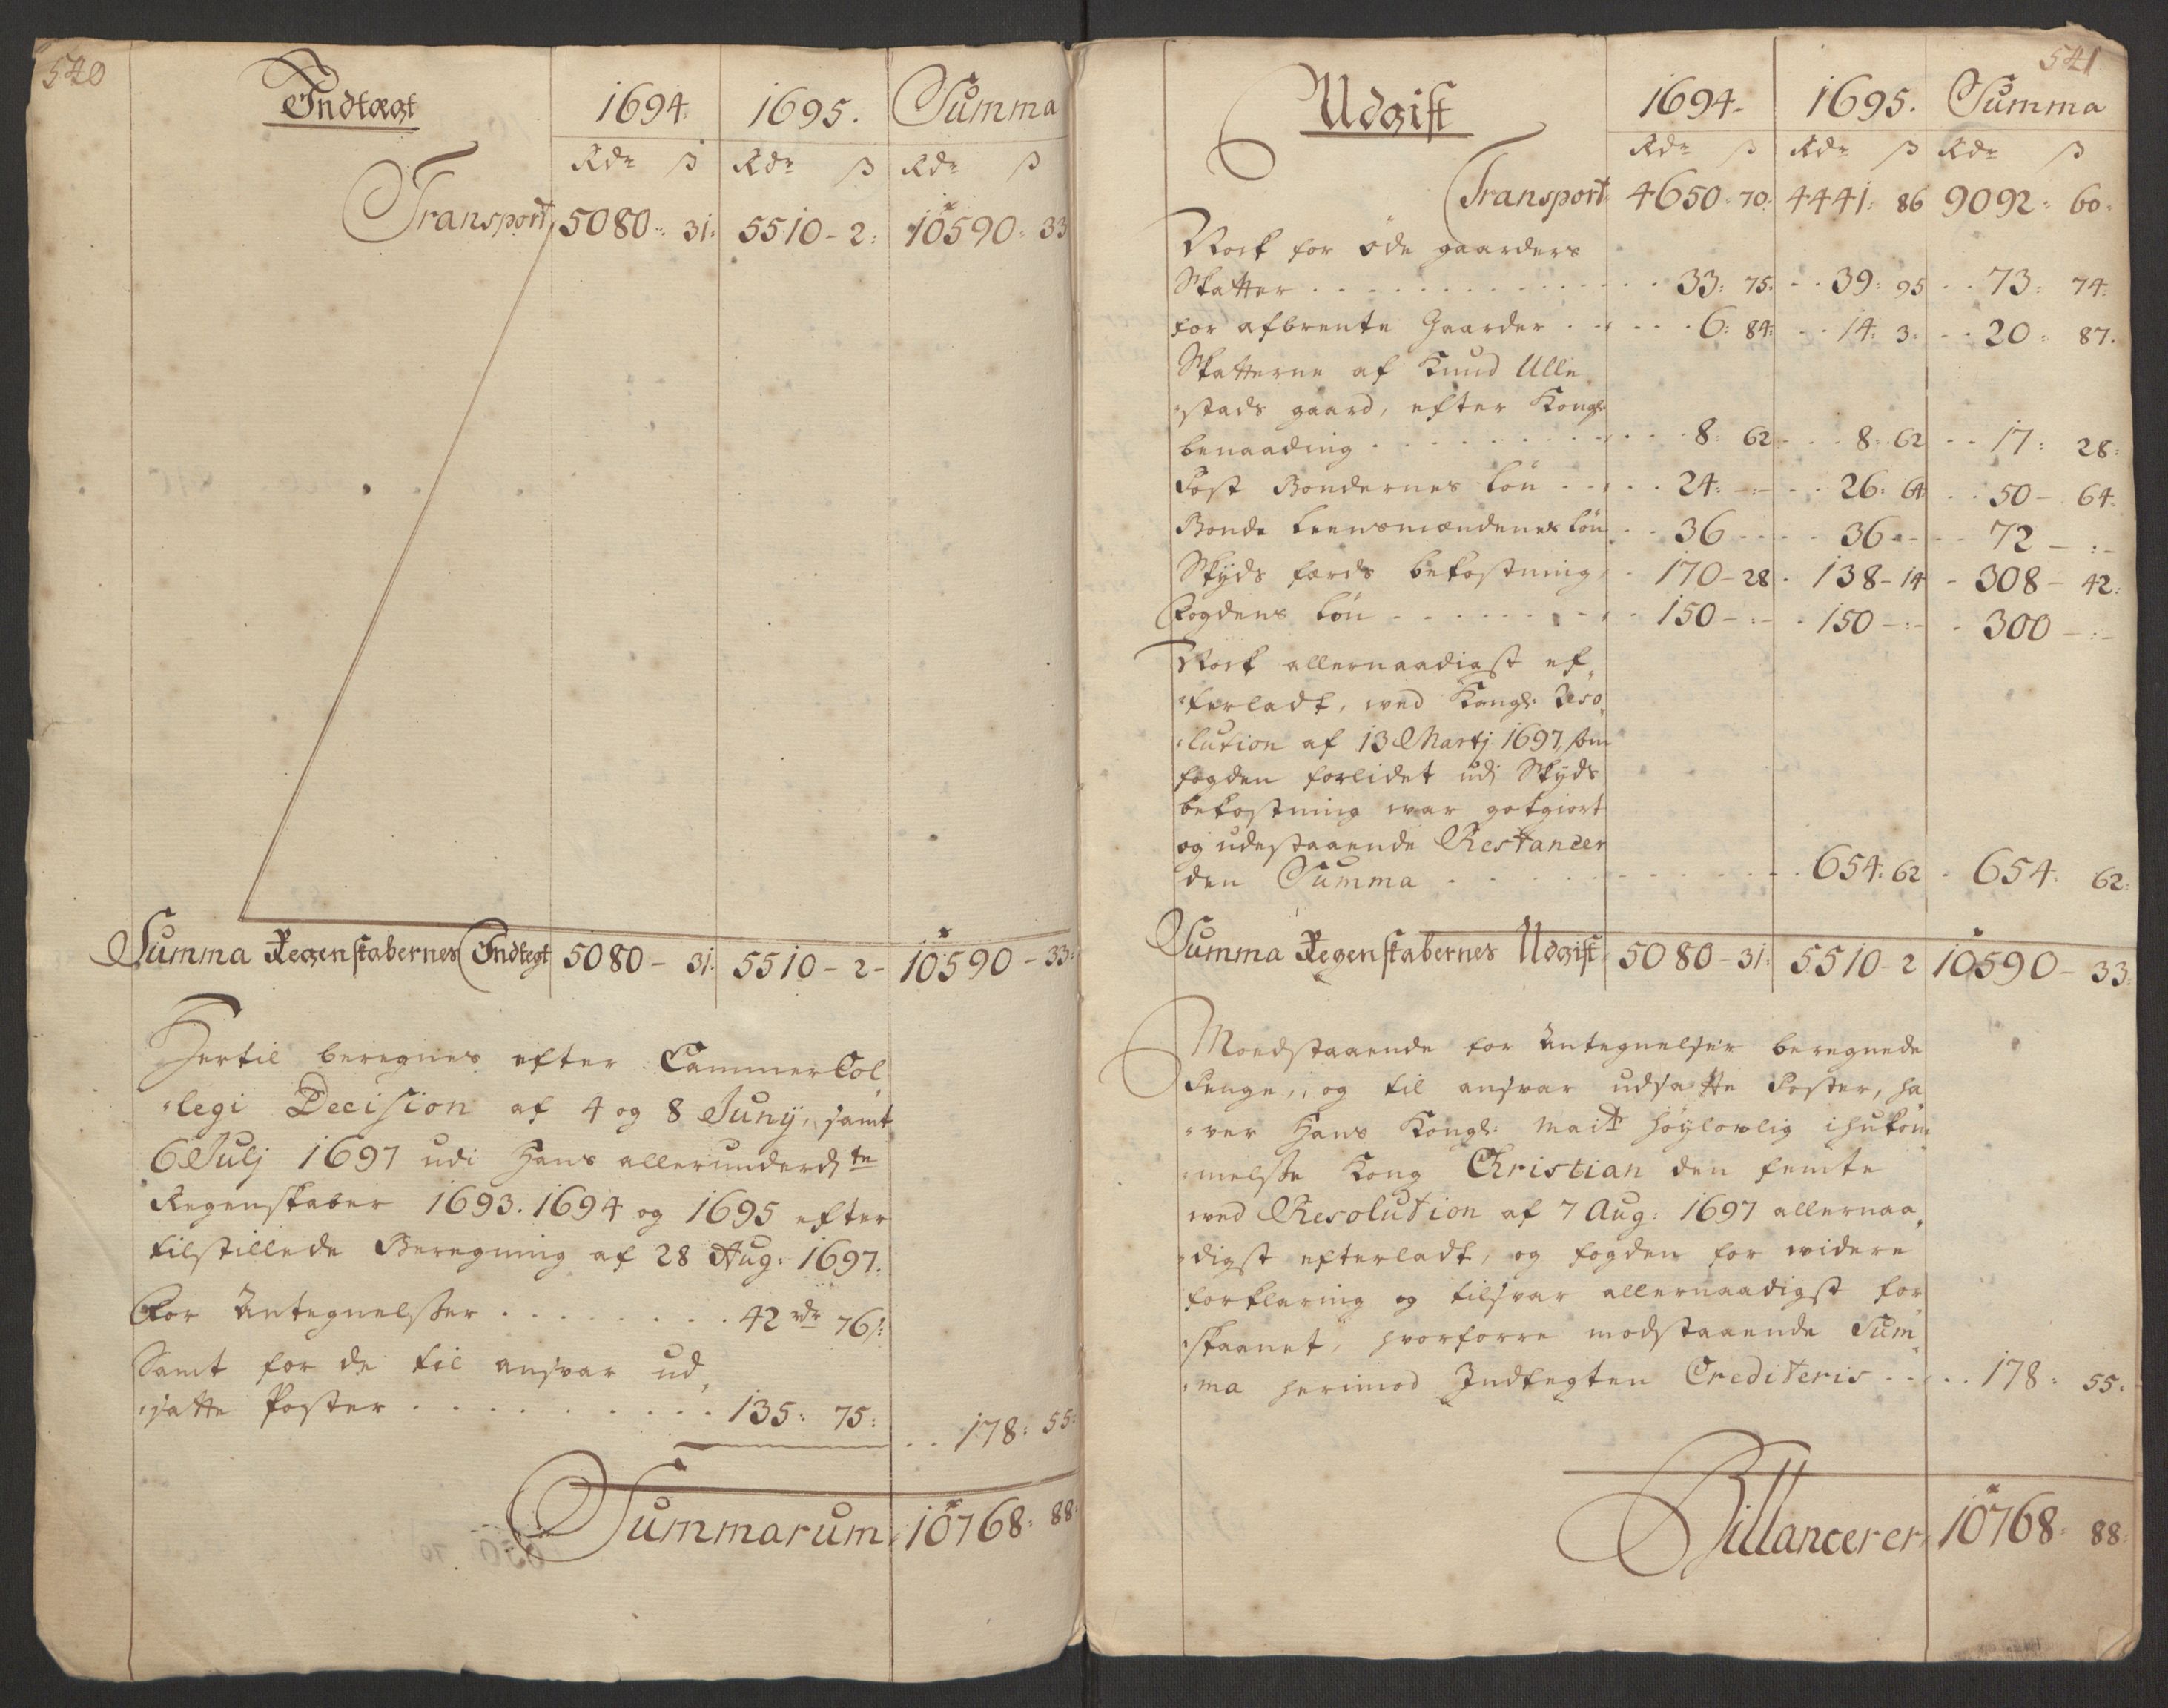 540
Indtægt 1694. 1695. Summa
Rdr ß Rdr ß Rdr ß
Transport, 5080-: 31: 5510-2: 10590: 33
Summa Regenskabernes Indtegt 5080- 31: 5510-2- 10590-33:
Hertil beregnes efter CammerCol
legi Decision af 4 og 8 Junij, samt
6 Julj 1697 udi Hans allerunderd: te
Regenskaber 1693. 1694 og 1695 efter
tilstillede Beregning af 28 Aug: 1697.
For Antegnelsser . . . . . . . 42 rdr 76ß:
Samt for de til ansvar ud,
satte Poster . . . . . . . . . . 135: 75:
. . 178: 55:
Summarum, 10768: 88:
541
Udgift 1694- 1695. Summa
Rdr ß Rdr ß Rdr ß
Transport: 4650: 70: 4441: 86 9092: 60:
Nock for øde gaarders
Skatter . . . . . . . . . . . . 33: 75. . . 39: 95 . . 73: 74:
for afbrente Gaarder . . . . . 6: 84: . . 14: 3. . . 20: 87.
Skatterne af Knud Ulle
stads gaard, efter Kongl:
benaading . . . . . . . . . . 8: 62 . . . 8: 62 . . 17: 28:
Post Bøndernes løn . . . . 24: -:- . . 26: 64 . . 50- 64:
Bonde Leensmændenes løn . . 36 - - . . 36 - - . . 72 - :-
Skyds færds bekostning . 170-28 . 138-14 - 308- 42:
Fogdens Løn . . . . . . . . . 150-:- . 150-:- . 300-:-
Nock allernaadigst ef,
terladt, ved Kongl: Reso,
lution af 13 Martj 1697, som
fogden forlidet udj Skyds
bekostning war gotgiort
og udestaaende Restancer
den Summa . . . . . . . . . . 654: 62 . 654: 62:
Summa Regenskabernes Udgift: 5080-31: 5510-2 10590- 33:
Moedstaaende for Antegnelser beregnede
Penge, og til ansvar udsatte Poster, ha
ver Hans Kongl: Maitt høylovlig ihukom
melse Kong Christian den femte
ved Resolution af 7 Aug: 1697 allernaa,
digst efterladt, og fogden for widere
forklaring og tilsvar allernaadigst for
skaanet, hvorforre modstaaende Sum
ma herimod Indtegten Crediteris . . . . 178: 55:
Billancerer, 10768: 88: